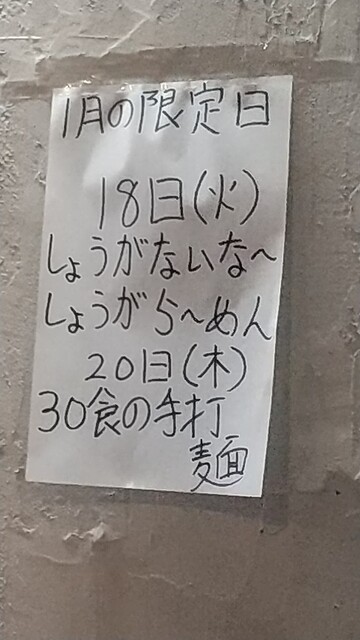 1月の限定日
18日(火)
しょうがないな〜
しょうがら〜めん
20日(木)
30食の手打
麺